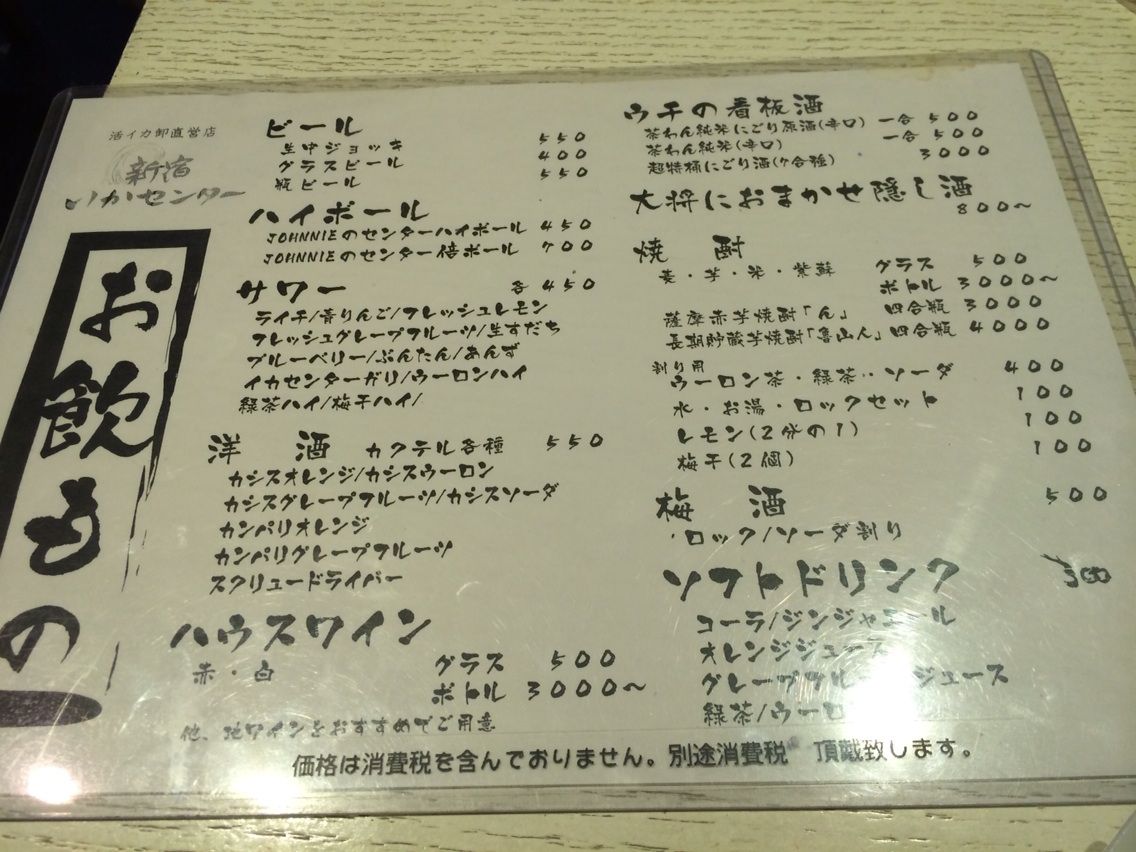 活イカ卸直営店
新宿
いかセンター
お飲もの
ビール
生中ジョッキ 550
グラスビール 400
瓶ビール 550
ハイボール
JOHNNIEのセンターハイボール 450
JOHNNIEのセンター倍ボール 700
サワー 各450
ライチ/青りんご/フレッシュレモン
フレッシュグレープフルーツ/生すだち
ブルーベリー/ぶんたん/あんず
イカセンターガリ/ウーロンハイ
緑茶ハイ/梅干ハイ/
洋 酒 カクテル各種 550
カシスオレンジ/カシスウーロン
カシスグレープフルーツ/カシスソーダ
カンパリオレンジ
カンパリグレープフルーツ
スクリュードライバー
ハウスワイン
赤・白 グラス 500
ボトル 3000~
他、地ワインをおすすめでご用意
ウチの看板酒
茶わん純米にごり原酒(辛口) 一合 500
茶わん純米(辛口) 一合 500
超特桶にごり酒(7合種) 3000
大将におまかせ隠し酒
800~
焼 酎
麦・芋・米・紫蘇 グラス 500
ボトル 3000~
薩摩赤芋焼酎「ん」 四合瓶 3000
長期貯蔵芋焼酎「魯山人」 四合瓶 4000
割り用
ウーロン茶・緑茶・・ソーダ 400
水・お湯・ロックセット 100
レモン(2分の1) 100
梅干(2個) 100
梅 酒 500
・ロック/ソーダ割り
ソフトドリンク 300
コーラ/ジンジャエール
オレンジジュース
グレープフルーツジュース
緑茶/ウーロ
価格は消費税を含んでおりません。別途消費税 頂戴致します。